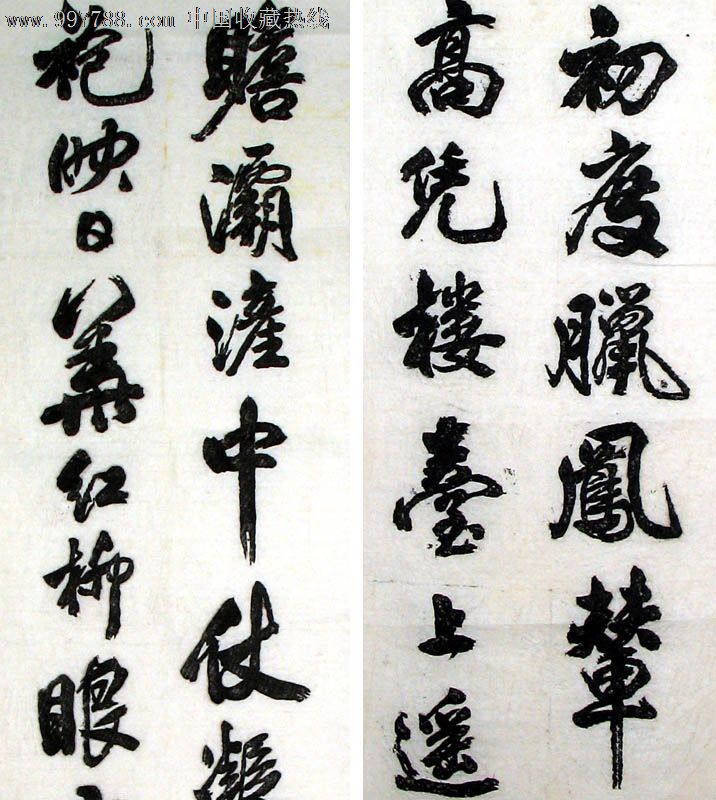 www.997788.com 中国收藏热线
初度臘鳳輦
高凭楼臺上遥
瞻灞滻中仗凝
袍映日華紅柳眼